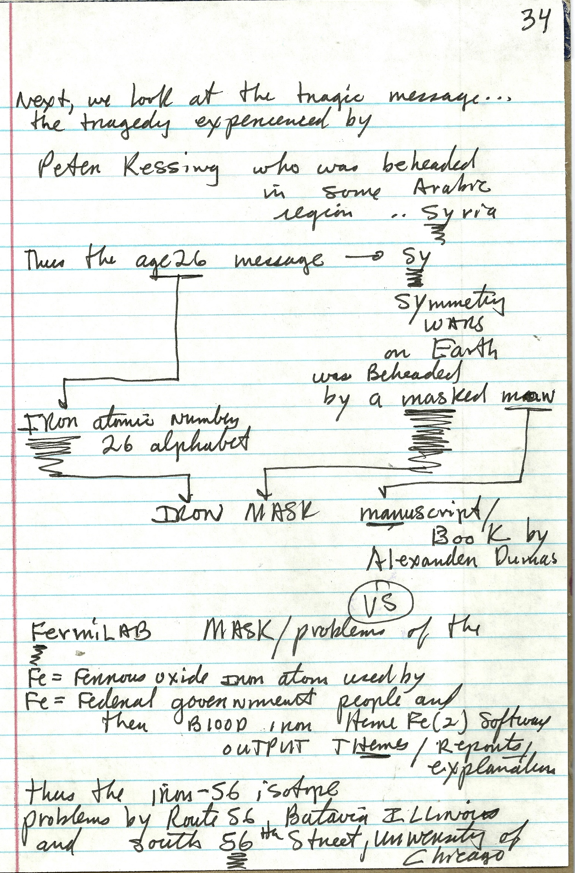 34
Next, we look at the tragic message...
the tragedy experienced by
Peter Kessing who was beheaded
in some Arabic
region .. Syria
Thus the age 26 message → Sy
Symmetry
WARS
on Earth
was Beheaded
by a masked man
IRon atomic number
26 alphabet
IRON MASK manuscript/
BooK by
Alexander Dumas
VS
FermiLAB MASK/problems of the
Fe = Ferrous oxide iron atom used by
Fe = Federal government people and
then BlooD iron Heme Fe(2) Softway
OUTPUT THemes/Reports,
explanation
thus the iron-56 isotope
problems by Route 56, Batavia Illinios
and south 56th Street, University of
Chicago